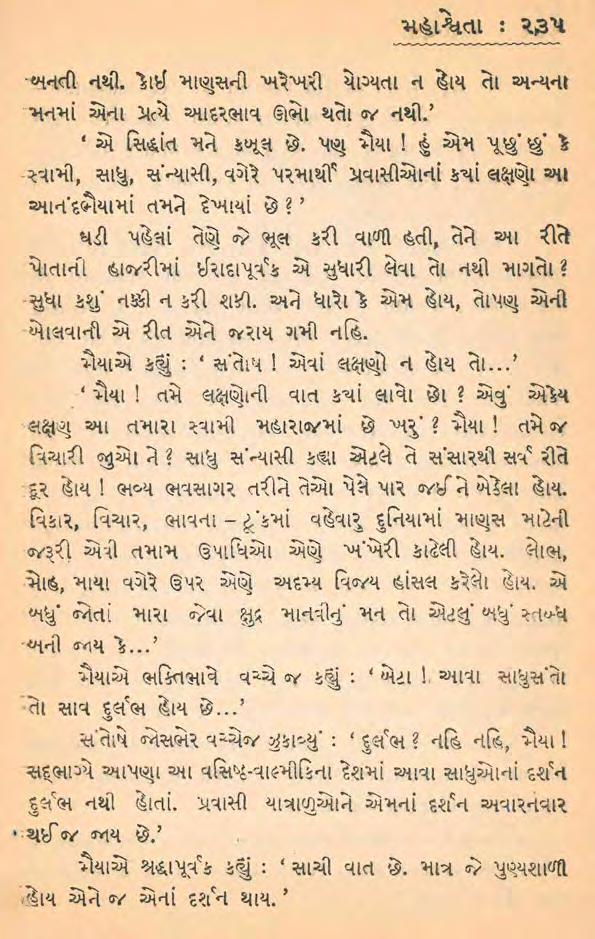 મહાશ્વેતા : ૨૩૫
બનતી નથી. કોઈ માણસની ખરેખરી યોગ્યતા ન હોય તો અન્યના
મનમાં એના પ્રત્યે આદરભાવ ઊભો થતો જ નથી.’
‘ એ સિદ્ધાંત મને કબૂલ છે. પણ મૈયા ! હું એમ પૂછું છું કે
સ્વામી, સાધુ, સંન્યાસી, વગેરે પરમાર્થી પ્રવાસીઓનાં કયાં લક્ષણો આ
આનંદભૈયામાં તમને દેખાયાં છે ? ’
ઘડી પહેલાં તેણે જે ભૂલ કરી વાળી હતી, તેને આ રીતે
પોતાની હાજરીમાં ઈરાદાપૂર્વક એ સુધારી લેવા તો નથી માગતો ?
સુધા કશું નક્કી ન કરી શકી. અને ધારો કે એમ હોય, તોપણ એની
બોલવાની એ રીત એને જરાય ગમી નહિ.
મૈયાએ કહ્યું : ‘ સંતોષ ! એવાં લક્ષણો ન હોય તો...’
‘ મૈયા ! તમે લક્ષણોની વાત કયાં લાવો છો ? એવું એકેય
લક્ષણ આ તમારા સ્વામી મહારાજમાં છે ખરું ? મૈયા ! તમે જ
વિચારી જુઓ ને ? સાધુ સંન્યાસી કહ્યા એટલે તે સંસારથી સર્વ રીતે
દૂર હોય ! ભવ્ય ભવસાગર તરીને તેઓ પેલે પાર જઈ ને બેઠેલા હોય.
વિકાર, વિચાર, ભાવના – ટૂંકમાં વહેવારુ દુનિયામાં માણસ માટેની
જરૂરી એવી તમામ ઉપાધિઓ એણે ખંખેરી કાઢેલી હોય. લોભ,
મોહ, માયા વગેરે ઉપર એણે અદમ્ય વિજય હાંસલ કરેલો હોય. એ
બધું જોતાં મારા જેવા ક્ષુદ્ર માનવીનું મન તો એટલું બધું સ્તબ્ધ
બની જાય કે...’
મૈયાએ ભક્તિભાવે વચ્ચે જ કહ્યું : ‘ બેટા ! આવા સાધુસંતો
તો સાવ દુર્લભ હોય છે...’
સંતોષે જોસભેર વચ્ચેજ ઝુકાવ્યું : ‘ દુર્લભ ? નહિ નહિ, મૈયા !
સદ્‌ભાગ્યે આપણા આ વસિષ્ઠ-વાલ્મીકિના દેશમાં આવા સાધુઓનાં દર્શન
દુર્લભ નથી હોતાં. પ્રવાસી યાત્રાળુઓને એમનાં દર્શન અવારનવાર
થઈ જ જાય છે.’
મૈયાએ શ્રદ્ધાપૂર્વક કહ્યું : ‘ સાચી વાત છે. માત્ર જે પુણ્યશાળી
હોય એને જ એનાં દર્શન થાય. ’